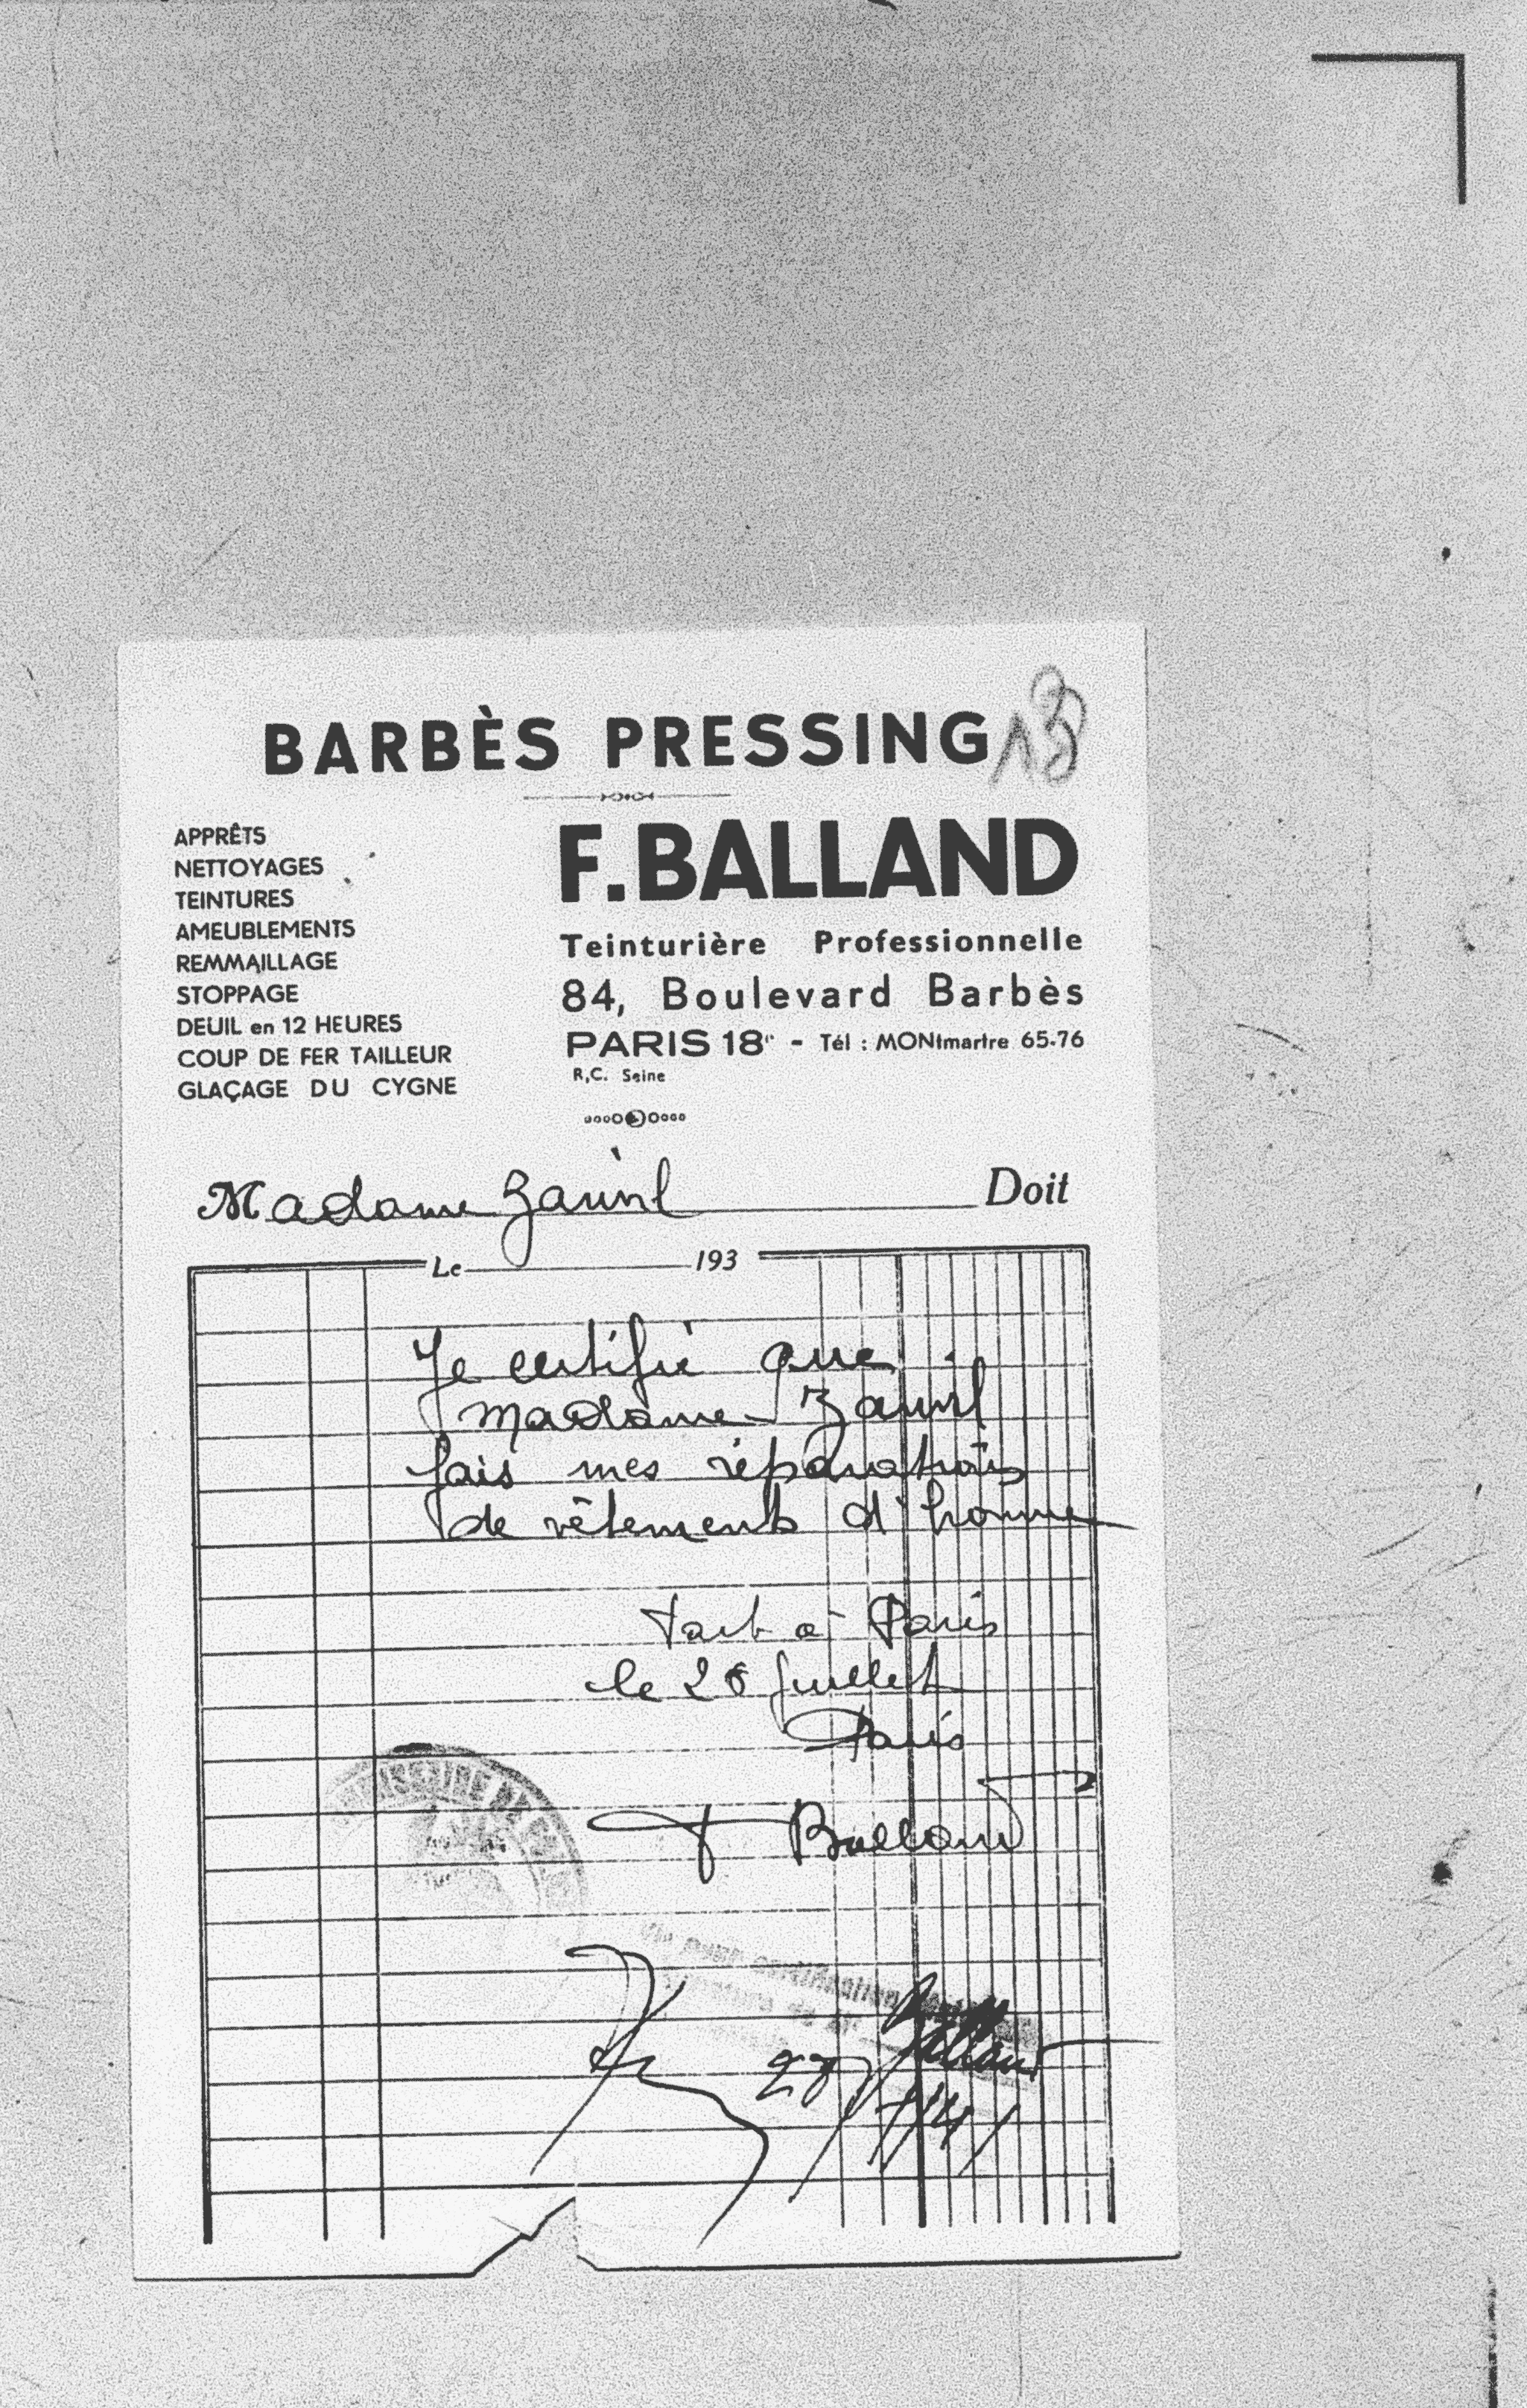 BARBÈS PRESSING
13
APPRÊTS
NETTOYAGES
TEINTURES
AMEUBLEMENTS
REMMAILLAGE
STOPPAGE
DEUIL en 12 HEURES
COUP DE FER TAILLEUR
GLAÇAGE DU CYGNE
F. BALLAND
Teinturière Professionnelle
84, Boulevard Barbès
PARIS 18e - Tél : MONtmartre 65-76
R.C. Seine
Madame Zavin Doit
Le 193
Je certifie que
madame
fais mes réparations
de vêtements d'homme
fait à Paris
le 26 juillet
Paris
F Balland
Balland